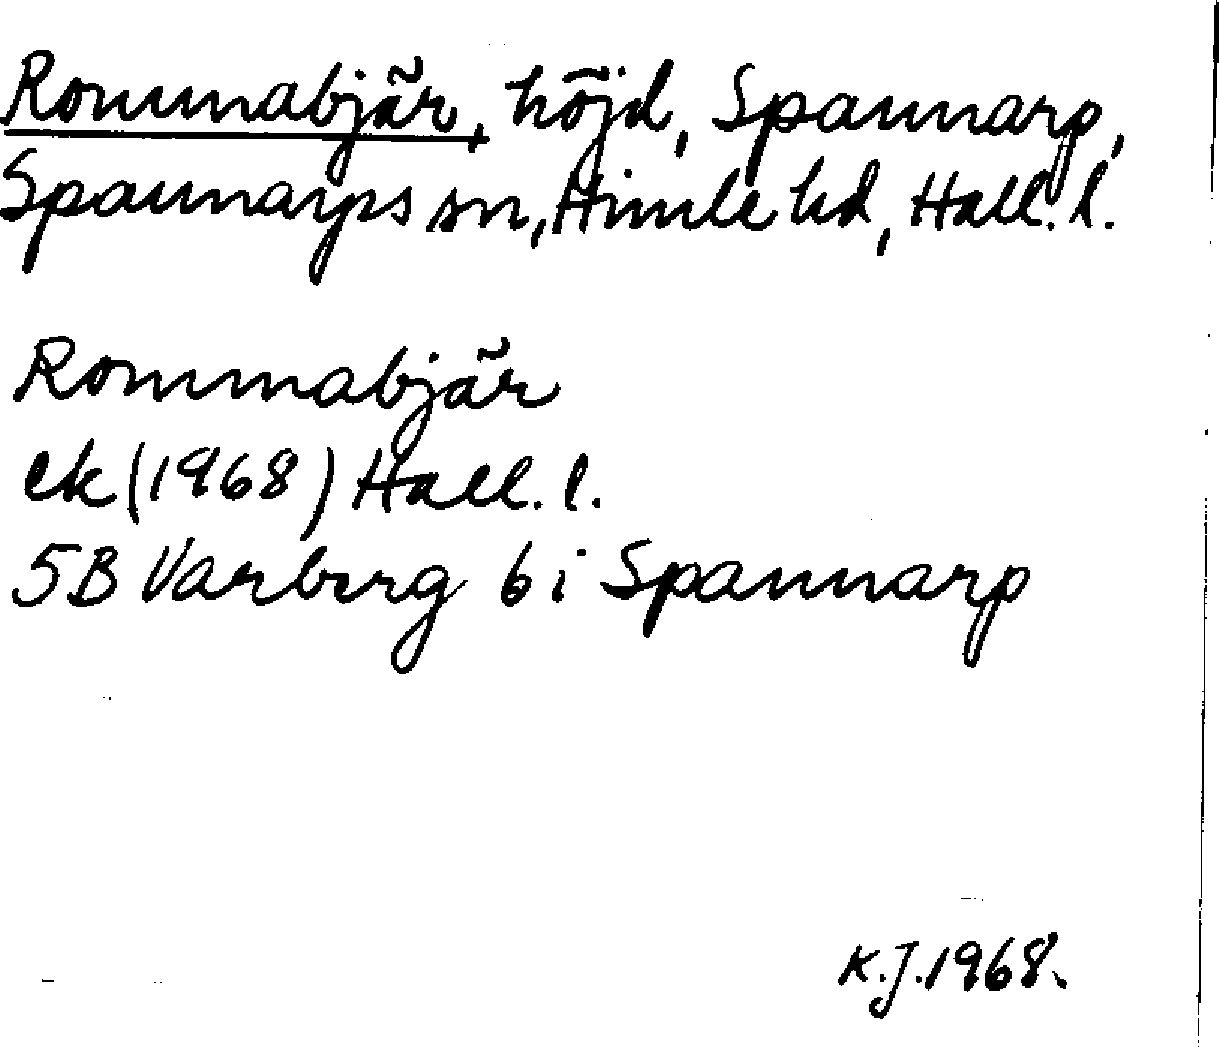 Rommabjär, höjd, Spannarp,
Spannarps sn, Himle hd, Hall. l.
Rommabjär
ek (1968) Hall. l.
5B Varberg 6 i Spannarp
K.J. 1968.